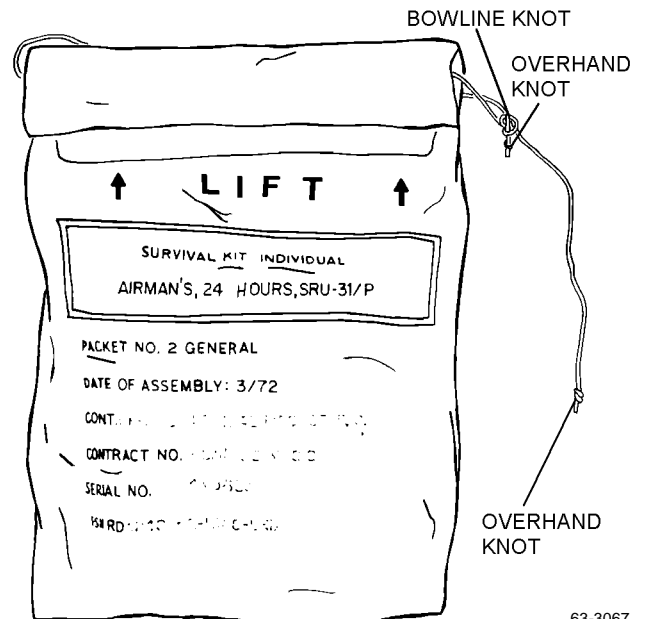 BOWLINE KNOT
OVERHAND
KNOT
LIFT
SURVIVAL KIT INDIVIDUAL
AIRMAN'S, 24 HOURS, SRU-31/P
PACKET NO. 2 GENERAL
DATE OF ASSEMBLY: 3/72
CONTRACT NO.
SERIAL NO.
OVERHAND
KNOT
63-3067